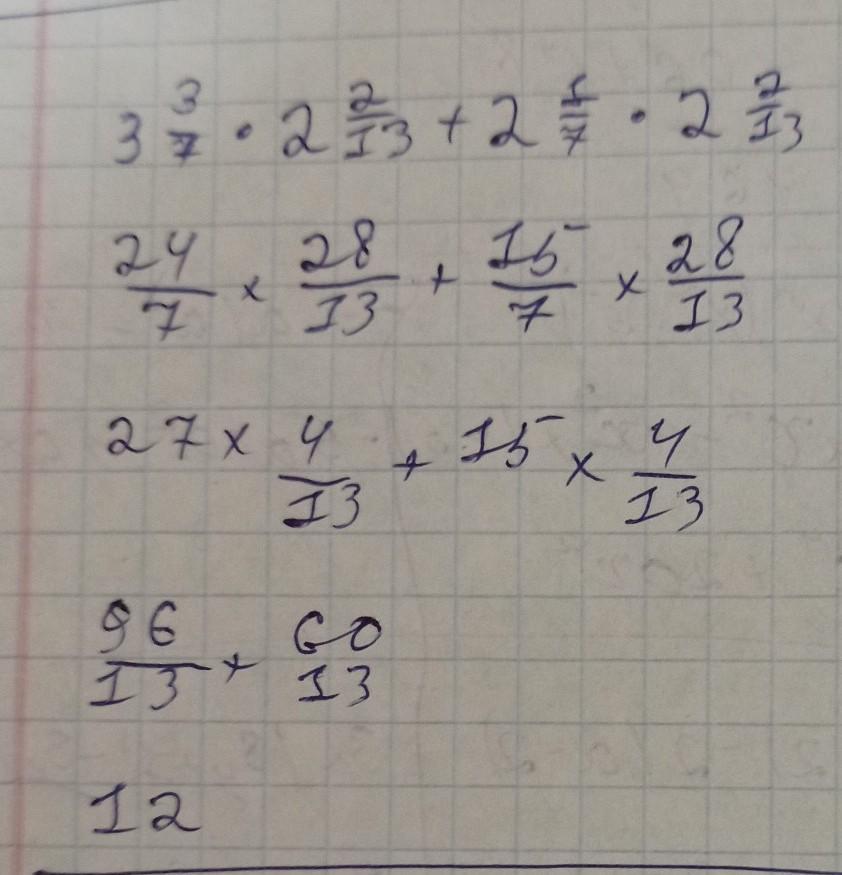 3 3/7 · 2 2/13 + 2 1/7 · 2 2/13
24/7 × 28/13 + 15/7 × 28/13
27 × 4/13 + 15 × 4/13
96/13 + 60/13
12